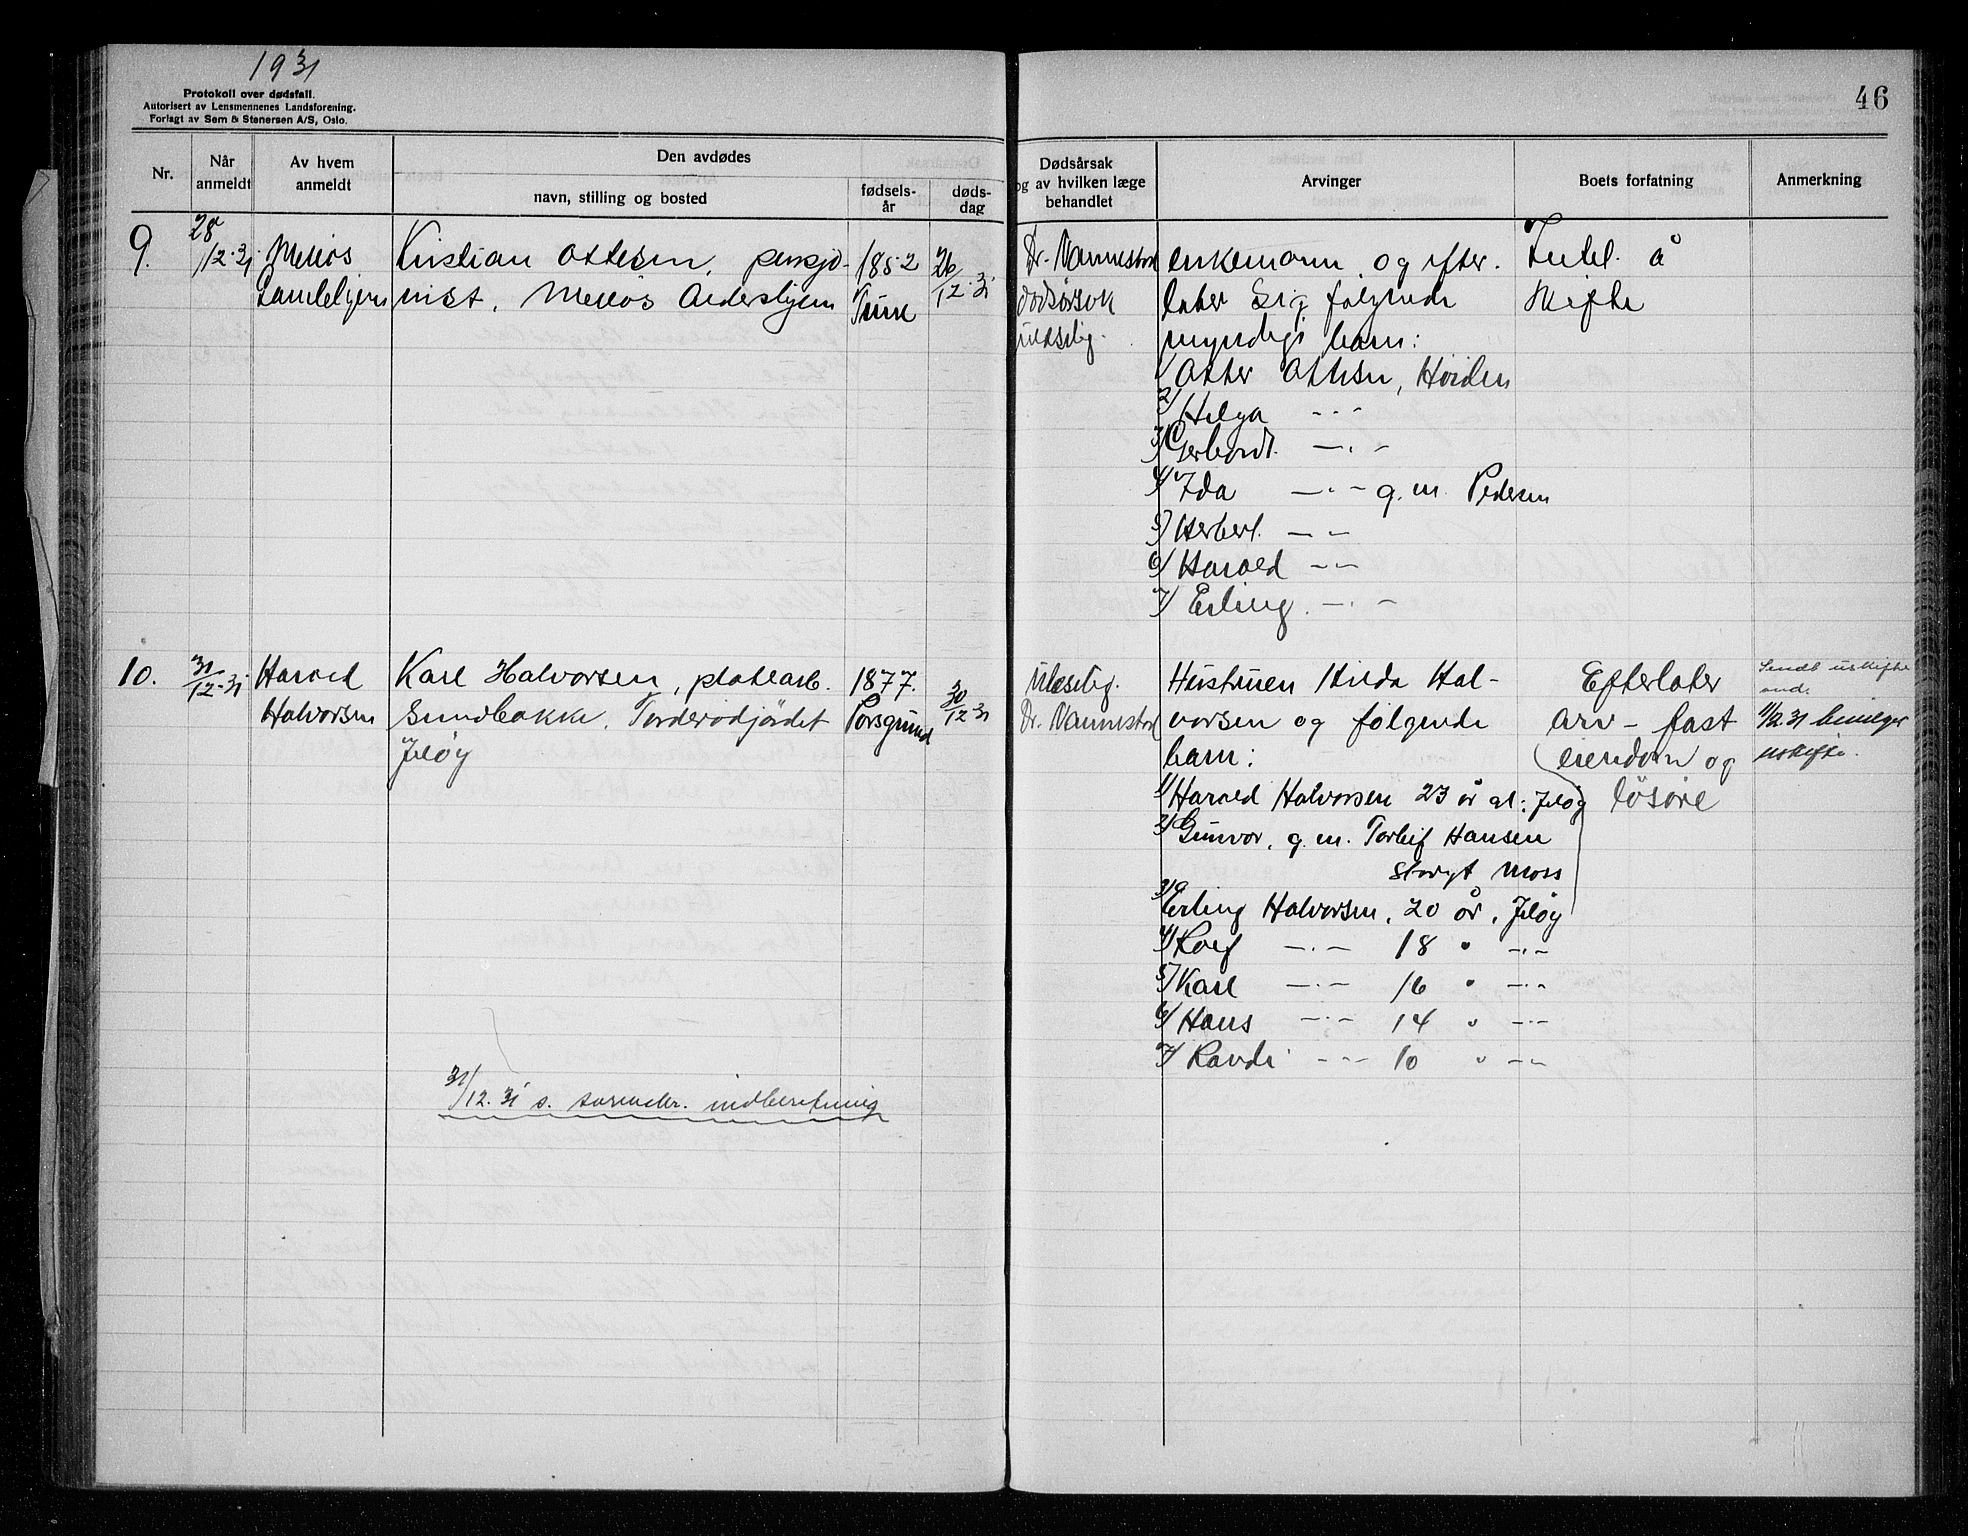 1931
Protokoll over dødsfall.
Autorisert av Lensmennenes Landsforening.
Forlagt av Sem & Stenersen A/S, Oslo.
46
Nr.
Når anmeldt
Av hvem anmeldt
Den avdødes
navn, stilling og bosted
fødselsår
dødsdag
Dødsårsak
og av hvilken læge
behandlet
Arvinger
Boets forfatning
Anmerkning
9.
28/12.31
Melløs
Gamlehjem
Kristian Ottesen, pensjo-
nist, Melløs Aldershjem
1852
Tune
26/12.31
Dr. Vannestad
dødsårsak
uleselig.
enkemann, og efter-
later sig følgende
myndige barn:
1/ Otter Ottesen, Halden
2/ Helga -"-
3/ Gerhard. -"-
4/ Ida -"- g.m. Pedersen
5/ Herbert. -"-
6/ Harald -"-
7/ Erling. -"-
Intet å
skifte
10.
31/12.31
Harald
Halvorsen
Karl Halvorsen, platearb.
Sundbakke, Torderødjordet
Jeløy
1877.
Porsgrund
30/12 31
Uleselig.
Dr. Vannestad
Hustruen Hilda Hal-
vorsen og følgende
barn:
1/ Harald Halvorsen 23 år gl. Jeløy
2/ Gunvor, g.m. Torleif Hansen
Storgt Moss
3/ Erling Halvorsen, 20 år, Jeløy
4/ Rolf -"- 18 " -"-
5/ Karl -"- 16 " -"-
6/ Hans -"- 14 " -"-
7/ Randi -"- 10 " -"-
Efterlater
arv - fast
eiendom og
løsøre
Sendt uskifte
and.
31 beviliger
uskifte.
31/12.31 s. summar. indberetning